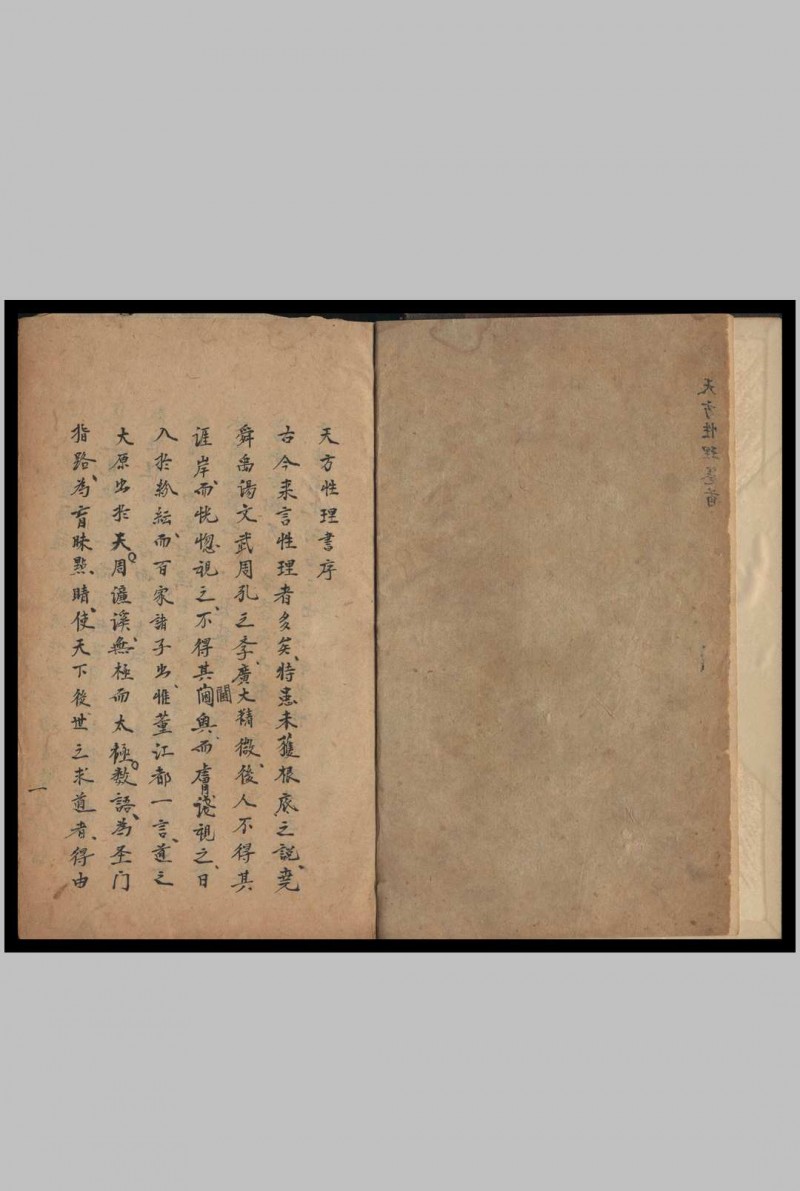 天方性理卷首
天方性理書序
古今来言性理者多矣、特患未獲根底之説、堯
舜禹湯文武周孔之季、廣大精微、後人不得其
涯岸、而恍惚視之、不得其閫奥、而膚浅視之、日
入於紛紜、而百家諸子出、惟董江都一言、道之
大原出於天。周濂溪、無極而太極。数語、為圣门
指路、為盲昧點睛、使天下後世之求道者、得由
一